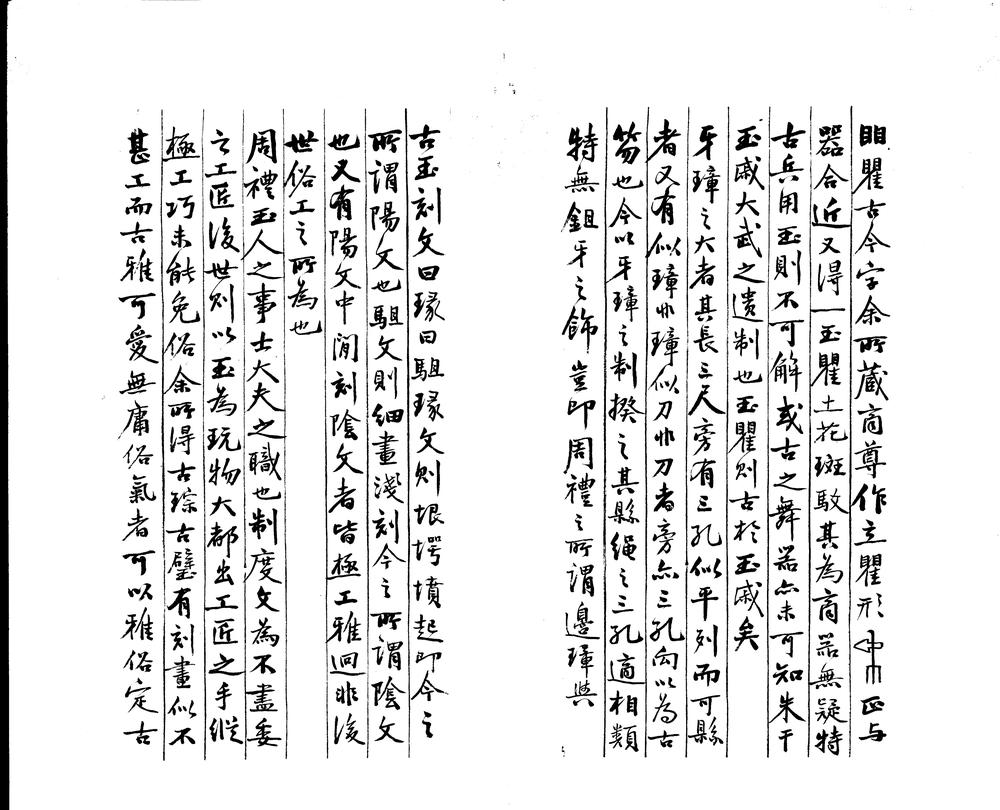 瞿古今字余所蔵商尊作立瞿形正与
器合近又得一玉瞿土花斑駮其為商器無疑特
古兵用玉則不可解或古之舞器亦未可知朱干
玉戚大武之遺制也玉瞿則古於玉戚矣
牙璋之大者其長三尺旁有三孔似平列而可縣
者又有似璋非璋似刀非刀者旁亦三孔向以為古
笏也今以牙璋之制揆之其縣繩之三孔適相類
特無鉏牙之飾豈即周禮之所謂邊璋與
古玉刻文曰瑑曰駔瑑文則垠堮墳起即今之
所謂陽文也駔文則細畫淺刻今之所謂陰文
也又有陽文中閒刻陰文者皆極工雅迥非後
世俗工之所為也
周禮玉人之事士大夫之職也制度文為不盡委
之工匠後世則以玉為玩物大都出工匠之手縱
極工巧未能免俗余所得古琮古璧有刻畫似不
甚工而古雅可愛無庸俗氣者可以雅俗定古